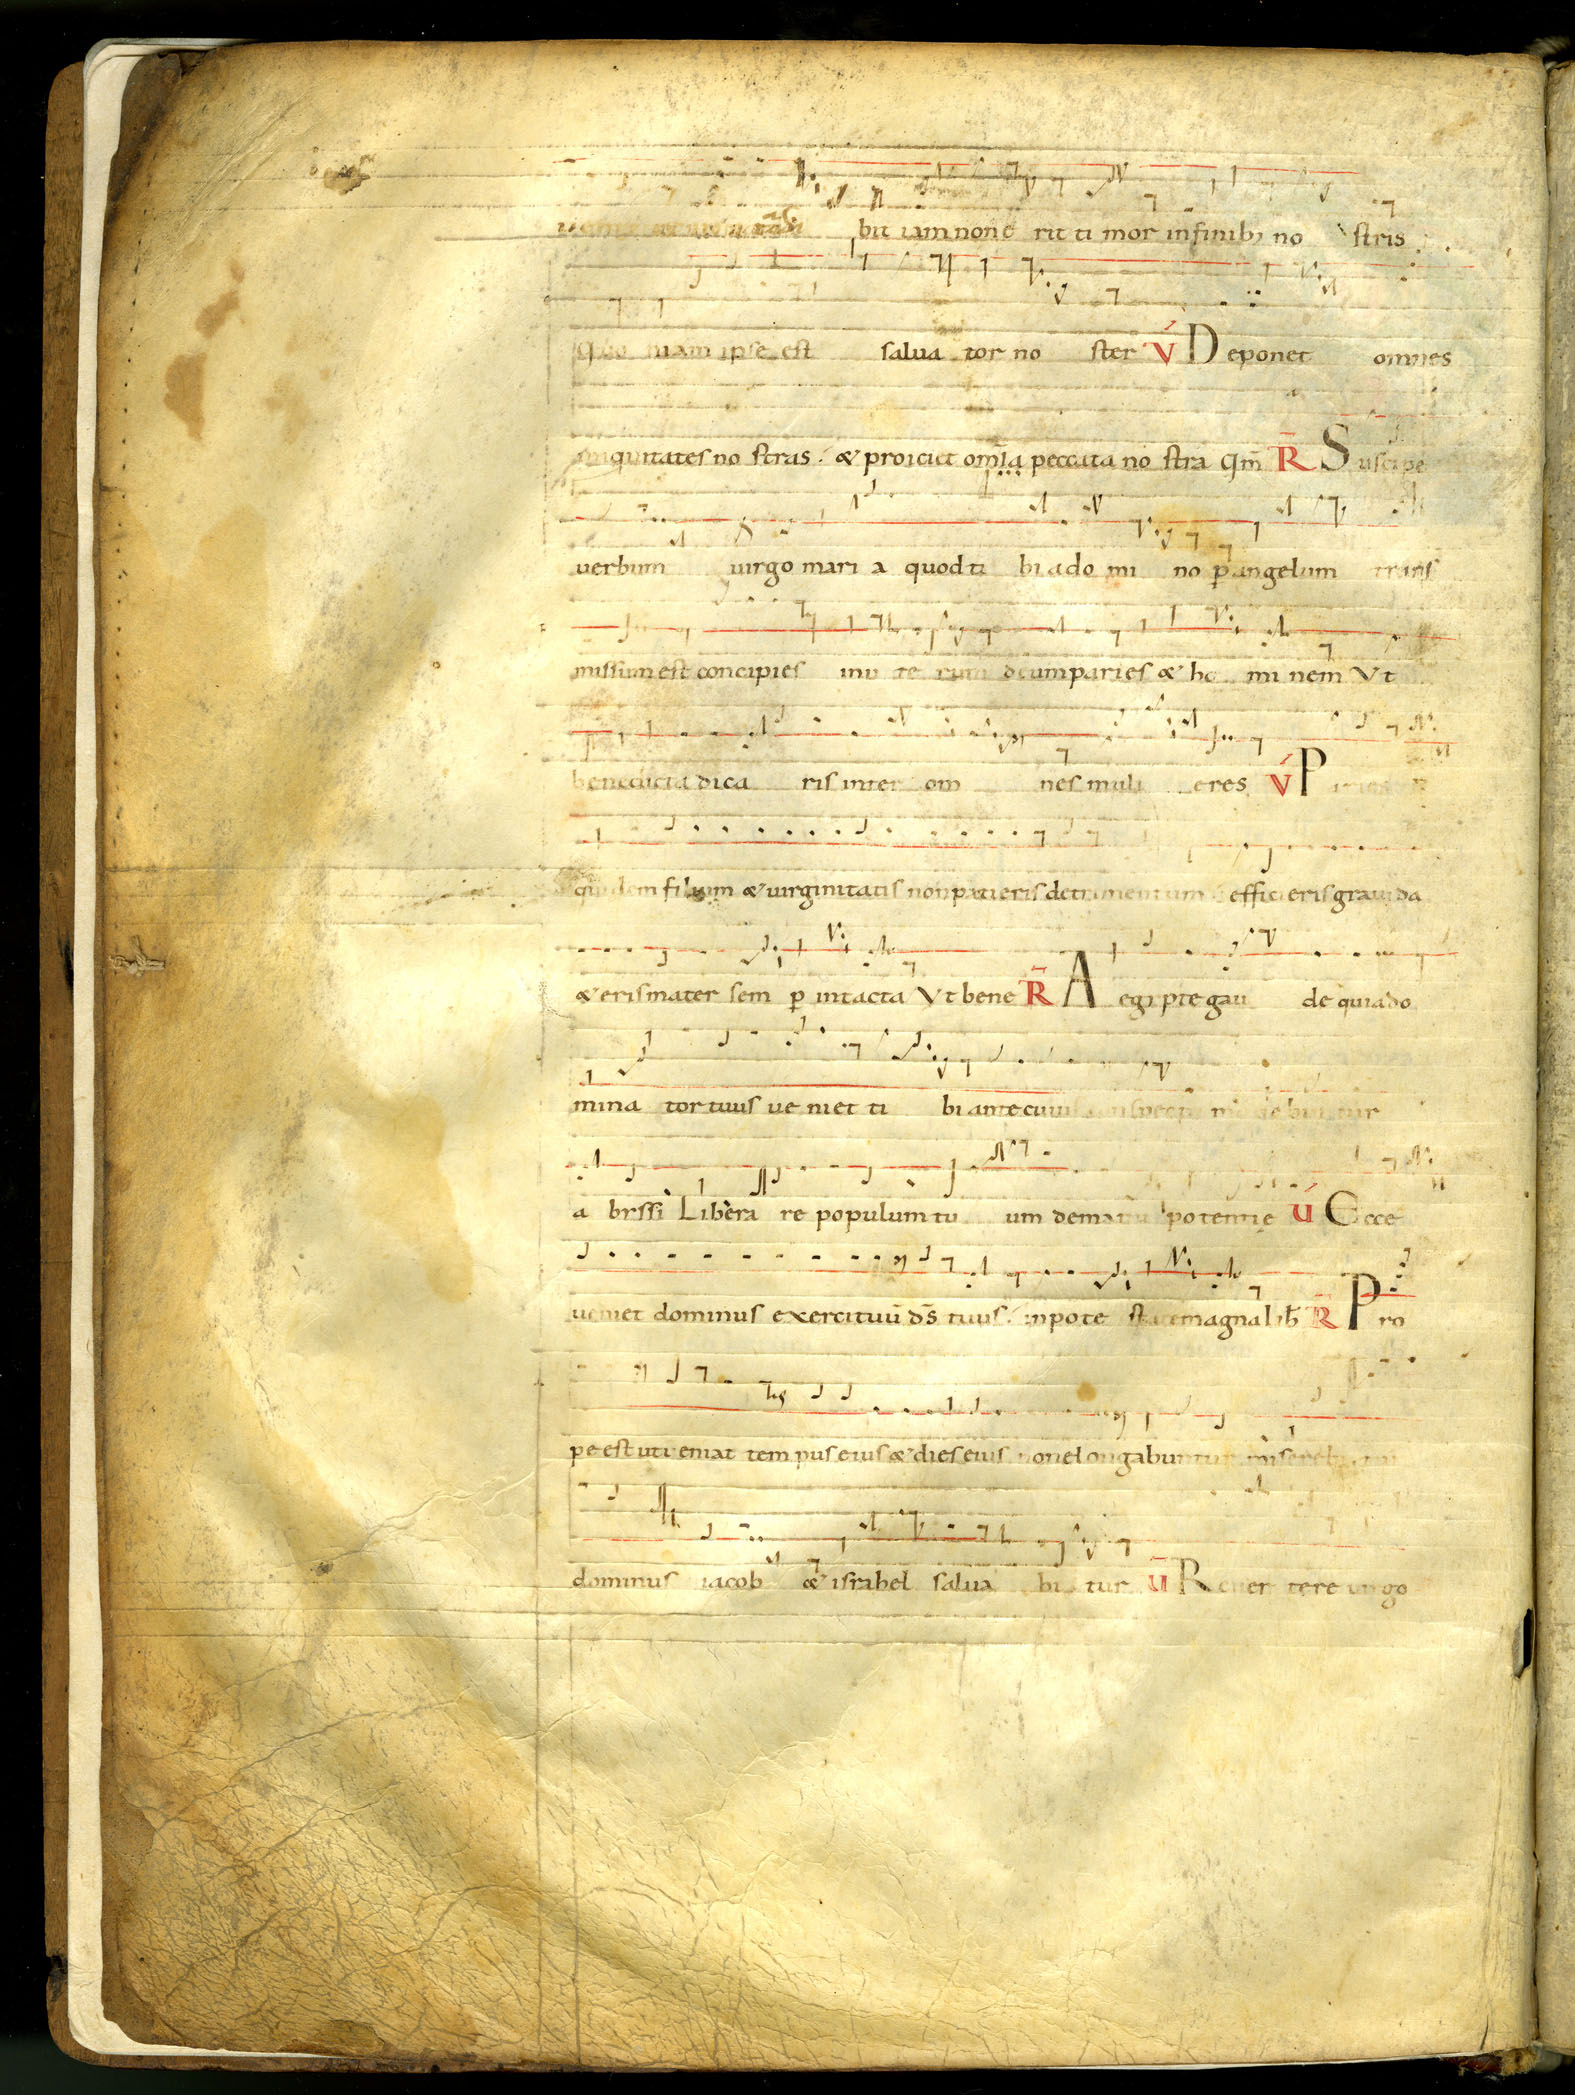 bit iam non e rit ti mor in finib; no stris
Quo niam ipse est salua tor no ster V D eponet omnes
iniquitates no stras. & proiciet om̄ia peccata no stra Qm̄ R̄ S uscipe
uerbum uirgo mari a quod ti bi a do mi no p angelum trans
missum est concipies in u te rum dcum paries & ho mi nem V t
benedicta dica ris inter om nes muli eres V P
quidem filium & uirginitatis non patieris detrimentum efficieris grauida
& eris mater sem p intacta V t bene R̄ A egipte gau de quia do
mina tor tuus ue niet ti bi ante cuius
a bissi Libera re populum tu um de manu potentię U Ecce
ueniet dominus exercituū ds̄ tuus. in pote state magna lib̄ R̄ P ro
pe est ut ueniat tem pus eius & dies eius non elongabuntur miserebitur
dominus iacob & israhel salua bi tur U R euer tere uirgo